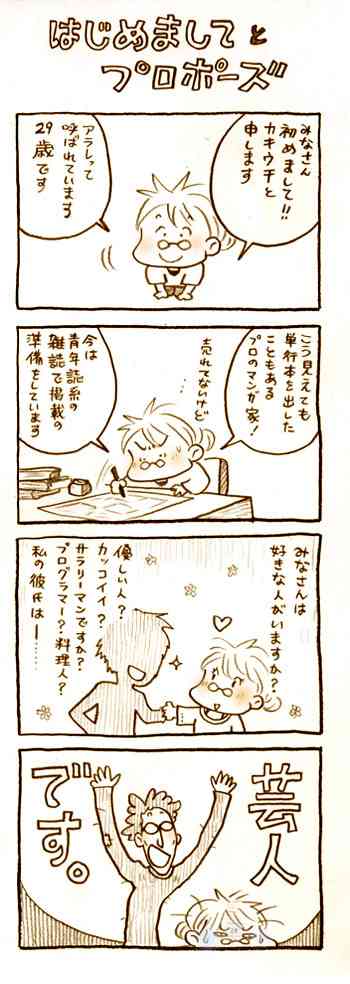 はじめまして と
プロポーズ
みなさん
初めまして!!
カキウチと
申します
アラレって
呼ばれています
29歳です
こう見えても
単行本を出した
こともある
プロのマンガ家!
売れてないけど
…
今は
青年誌系の
雑誌で掲載の
準備をしています
みなさんは
好きな人がいますか?
優しい人?
カッコイイ?
サラリーマンですか?
プログラマー?料理人?
私の彼氏は―……
芸人
です。